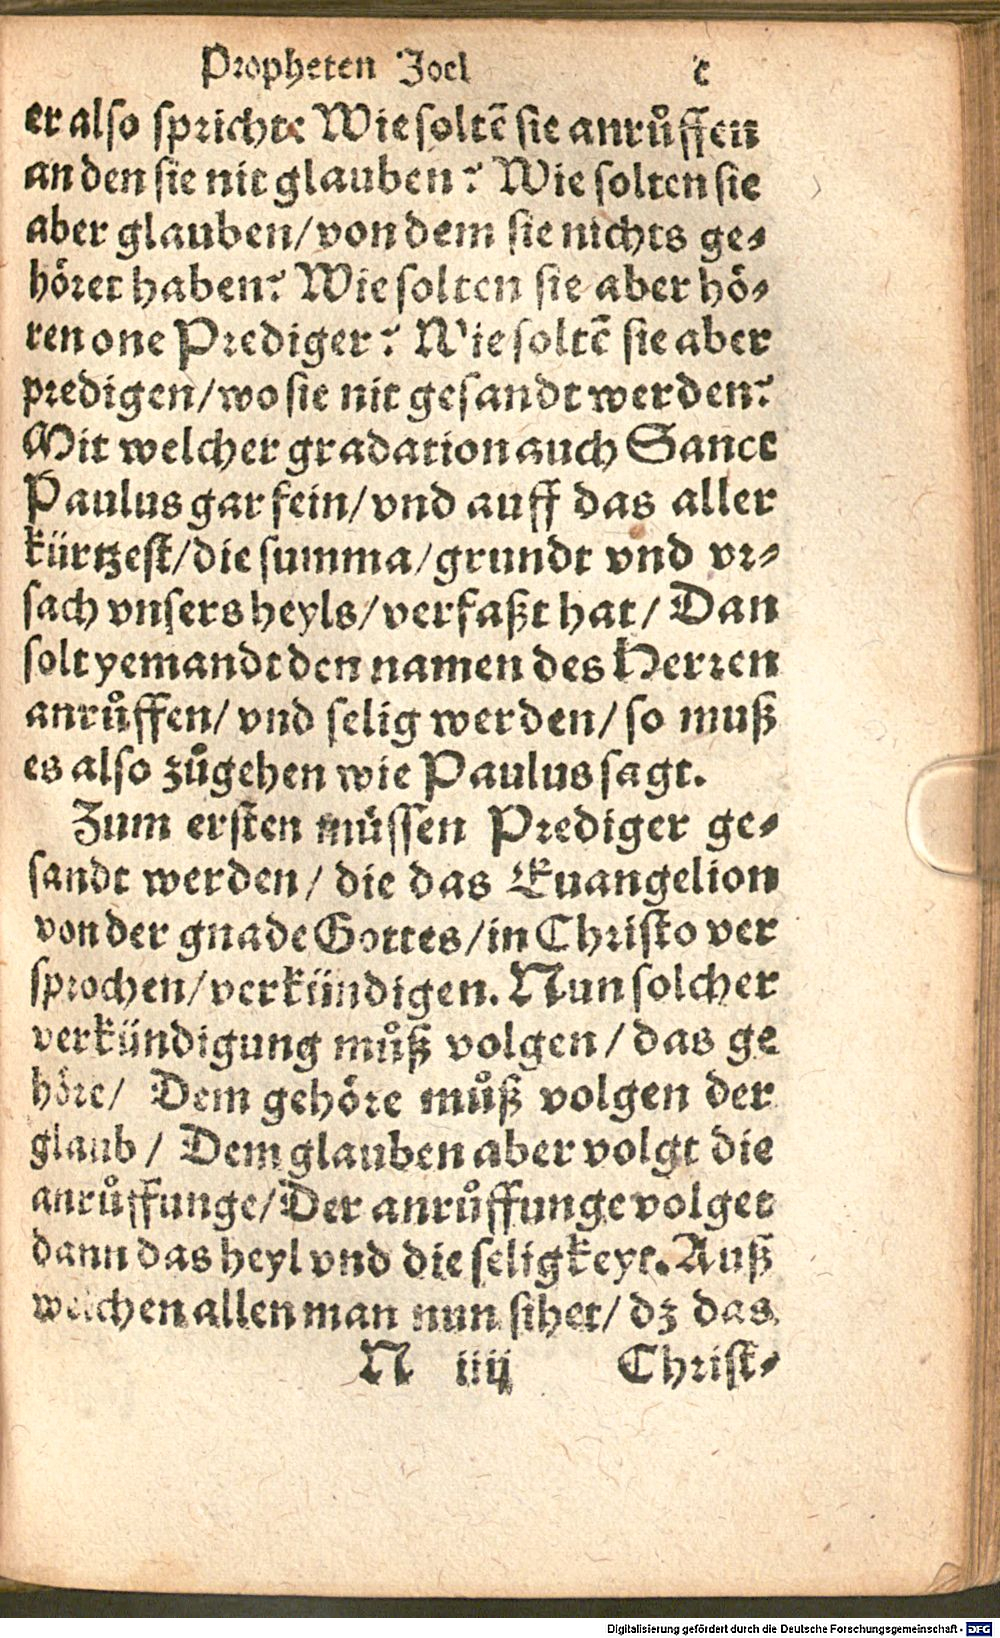 Propheten Joel c
er also spricht: Wie soltē sie anrůffen
an den sie nit glauben? Wie solten sie
aber glauben/von dem sie nichts ge-
höret haben? Wie solten sie aber hö-
ren one Prediger? Wie soltē sie aber
predigen/wo sie nit gesandt werden?
Mit welcher gradation auch Sanct
Paulus gar fein/vnd auff das aller
kürtzest/die summa/grundt vnd vr-
sach vnsers heyls/verfaßt hat/ Dan
solt yemandt den namen des Herren
anrůffen/vnd selig werden/so muß
es also zůgehen wie Paulus sagt.
Zum ersten müssen Prediger ge-
sandt werden/ die das Euangelion
von der gnade Gottes/in Christo ver
sprochen/verkündigen. Nun solcher
verkündigung můß volgen/das ge
höre/ Dem gehöre můß volgen der
glaub/ Dem glauben aber volgt die
anrůffunge/Der anrůffunge volget
dann das heyl vnd die seligkeyt. Auß
welchen allen man nun sihet/ dz das
N iiij Christ-
Digitalisierung gefördert durch die Deutsche Forschungsgemeinschaft - DFG